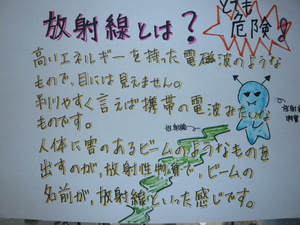 放射線とは?
とても
危険!
高いエネルギーを持った電磁波のような
もので、目には見えません。
判りやすく言えば携帯の電波みたいな
ものです。
人体に害のあるビームのようなものを
出すのが、放射性物質で、ビームの
名前が、放射線といった感じです。
放射線